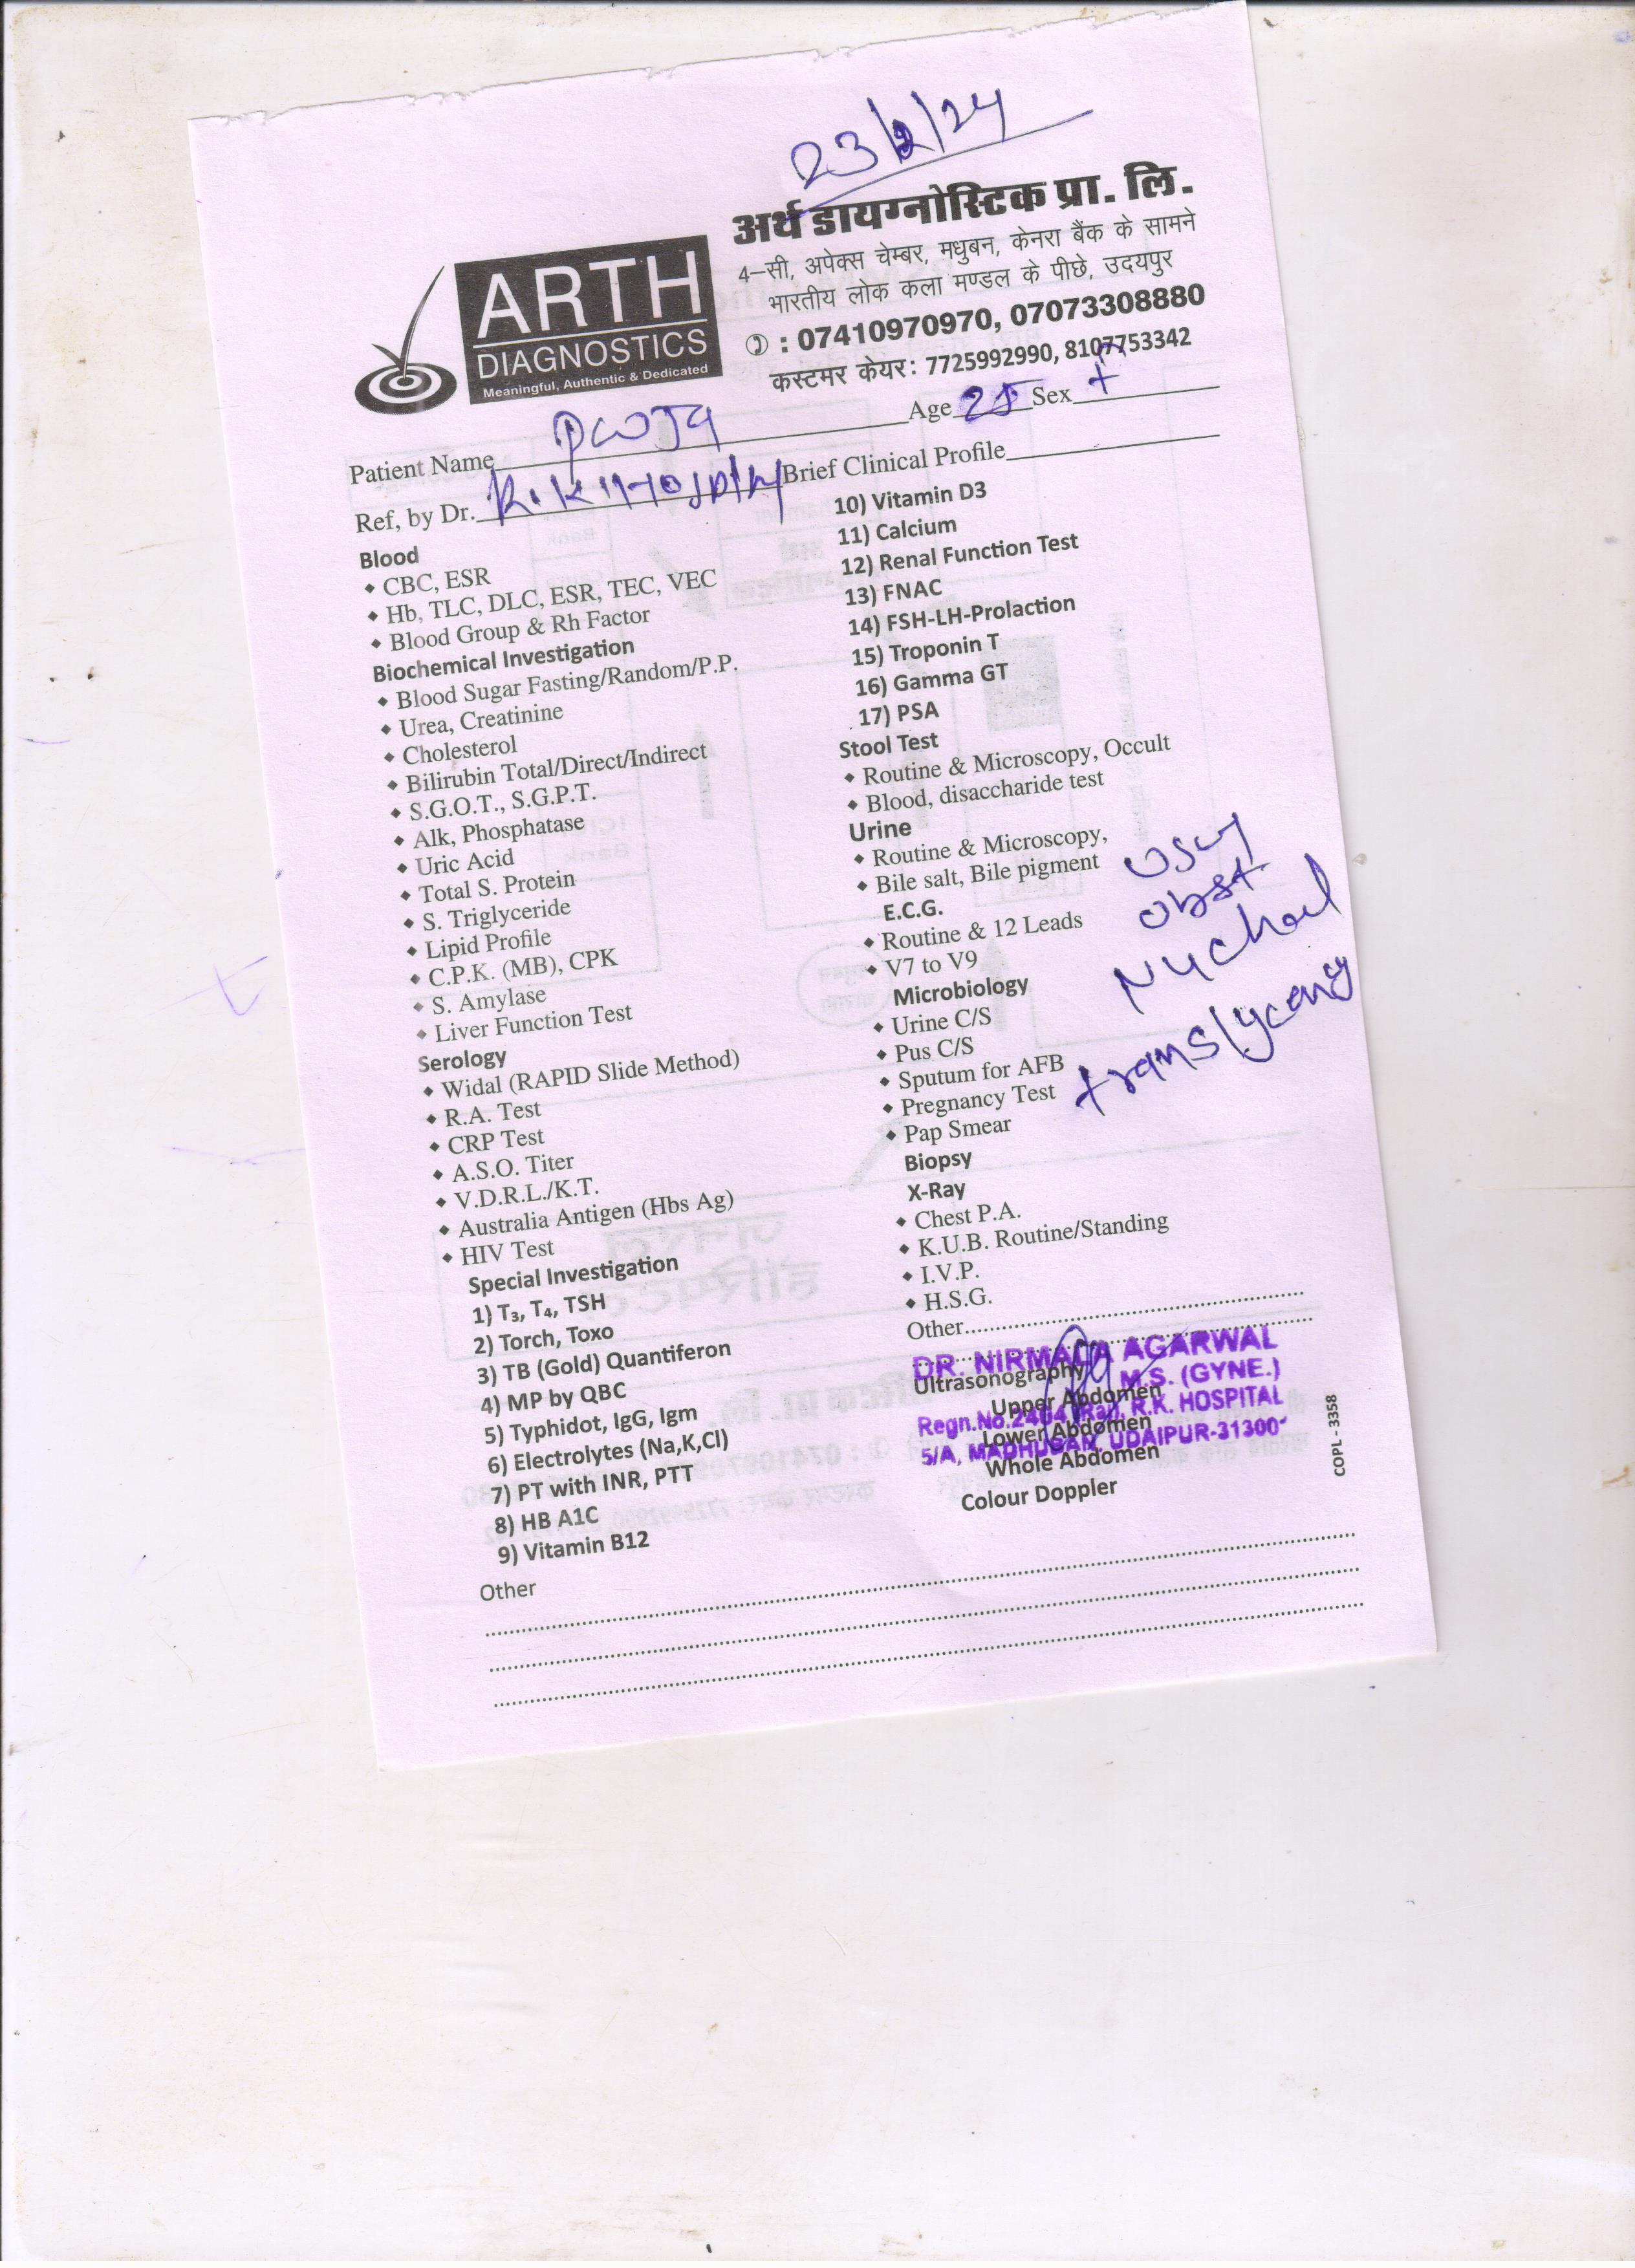 23/2/24
अर्थ डायग्नोस्टिक प्रा. लि.
4-सी, अपेक्स चेम्बर, मधुबन, केनरा बैंक के सामने
भारतीय लोक कला मण्डल के पीछे, उदयपुर
: 07410970970, 07073308880
कस्टमर केयर: 7725992990, 8107753342
ARTH
DIAGNOSTICS
Meaningful, Authentic & Dedicated
Patient Name Age Sex
Ref, by Dr. Brief Clinical Profile
Blood
CBC, ESR
Hb, TLC, DLC, ESR, TEC, VEC
Blood Group & Rh Factor
Biochemical Investigation
Blood Sugar Fasting/Random/P.P.
Urea, Creatinine
Cholesterol
Bilirubin Total/Direct/Indirect
S.G.O.T., S.G.P.T.
Alk, Phosphatase
Uric Acid
Total S. Protein
S. Triglyceride
Lipid Profile
C.P.K. (MB), CPK
S. Amylase
Liver Function Test
Serology
Widal (RAPID Slide Method)
R.A. Test
CRP Test
A.S.O. Titer
V.D.R.L./K.T.
Australia Antigen (Hbs Ag)
HIV Test
Special Investigation
1) T₃, T₄, TSH
2) Torch, Toxo
3) TB (Gold) Quantiferon
4) MP by QBC
5) Typhidot, IgG, Igm
6) Electrolytes (Na,K,Cl)
7) PT with INR, PTT
8) HB A1C
9) Vitamin B12
10) Vitamin D3
11) Calcium
12) Renal Function Test
13) FNAC
14) FSH-LH-Prolaction
15) Troponin T
16) Gamma GT
17) PSA
Stool Test
Routine & Microscopy, Occult
Blood, disaccharide test
Urine
Routine & Microscopy,
Bile salt, Bile pigment
E.C.G.
Routine & 12 Leads
V7 to V9
Microbiology
Urine C/S
Pus C/S
Sputum for AFB
Pregnancy Test
Pap Smear
Biopsy
X-Ray
Chest P.A.
K.U.B. Routine/Standing
I.V.P.
H.S.G.
Other
obst
DR. NIRMALA AGARWAL
M.S. (GYNE.)
Regn.No.2464 (Raj), R.K. HOSPITAL
5/A, MADHUBAN, UDAIPUR-31300
Ultrasonography
Upper Abdomen
Lower Abdomen
Whole Abdomen
Colour Doppler
COPL - 3358
Other